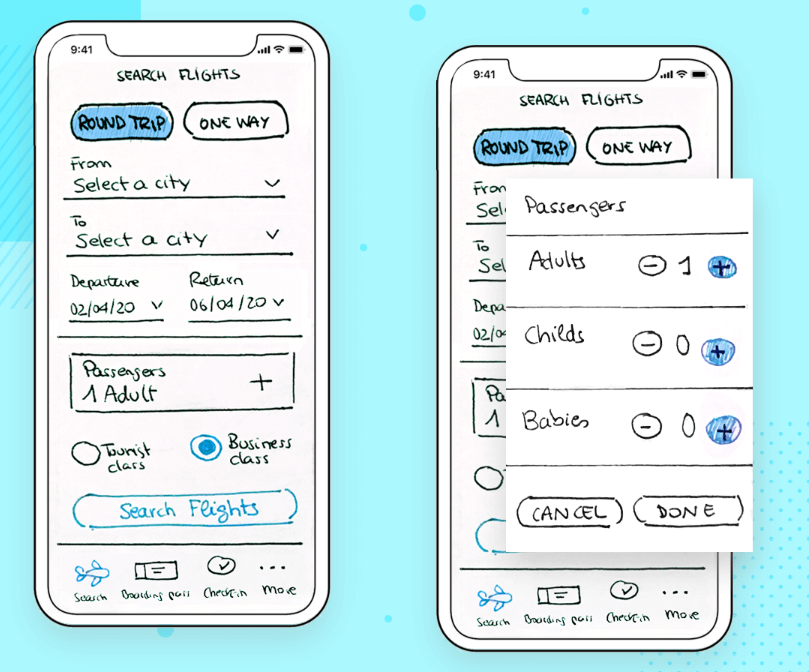 9:41
SEARCH FLIGHTS
ROUND TRIP
ONE WAY
From
Select a city
To
Select a city
Departure
Return
02/04/20
06/04/20
Passengers
1 Adult
+
Tourist
class
Business
class
Search Flights
Search
Boarding pass
Check-in
More
9:41
SEARCH FLIGHTS
ROUND TRIP
ONE WAY
From
Sel
To
Sel
Depa
02/04
Pa
1
Passengers
Adults
− 1 +
Childs
− 0 +
Babies
− 0 +
CANCEL
DONE
Search
Boarding pass
Check-in
More